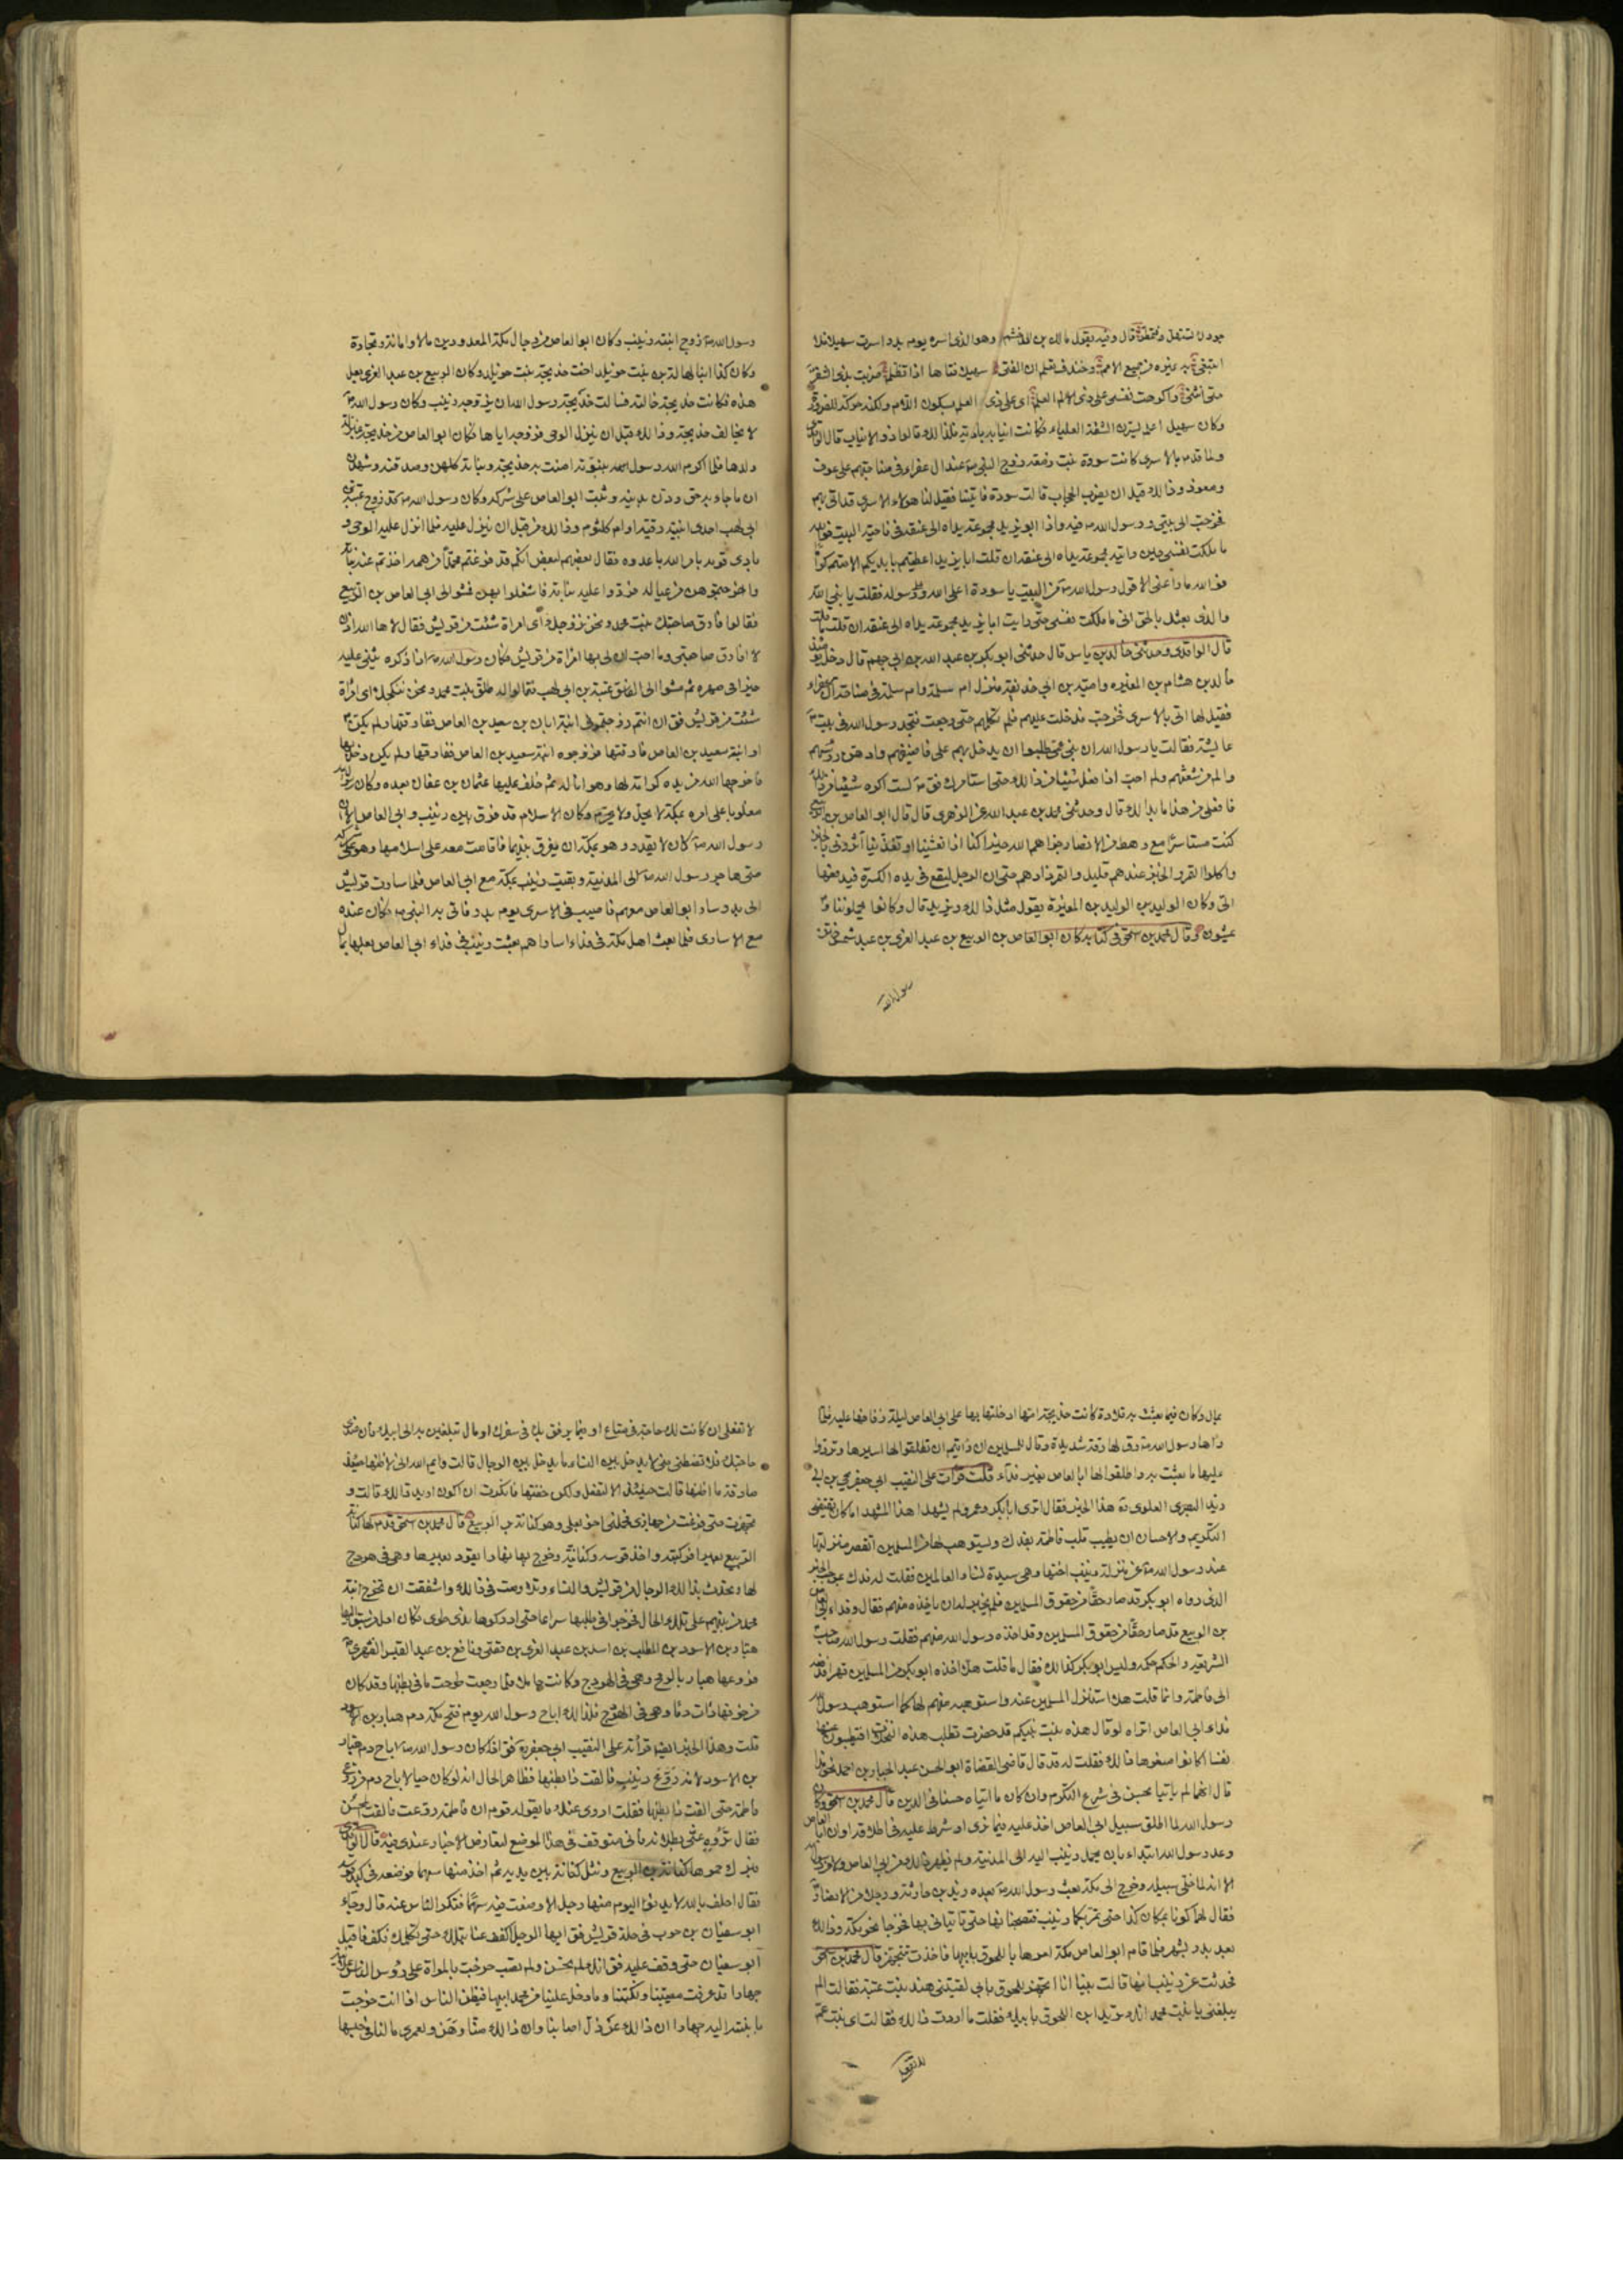 جودك لتستهل وتمطر قال وفيه يقول مالك بن الدخشم وهو الذي اسره يوم بدر اسرت سهيلا فلا
ابتغي به غيره من جميع الامم وخندف تعلم ان الفتى سهيلا فتاها اذا تظلم ضربت بذي الشفر
حتى انثنى واكرهت نفسي على ذي العلم اي على ذي العلم بسكون اللام ولكنه حركه للضرورة
وكان سهيل اعلم الشفة العلياء فكانت انيابه بادية فلذلك قالوا ذو الانياب قال الواقدي
ولما قدم بالاسرى كانت سودة بنت زمعة زوج النبي ص عند ال عفراء في مناحتهم على عوف
ومعوذ وذلك قبل ان يضرب الحجاب قالت سودة فاتينا فقيل لنا هولاء الاسرى قد اتي بهم
فخرجت الى بيتي ورسول الله ص فيه واذا ابو يزيد مجموعة يداه الى عنقه في ناحية البيت فوالله
ما ملكت نفسي حين رايته مجموعة يداه الى عنقه ان قلت ابا يزيد اعطيتم بايديكم الا متم كراما
فوالله ما راعني الا قول رسول الله ص من البيت يا سودة اعلى الله وعلى رسوله فقلت يا نبي الله
والذي بعثك بالحق اني ما ملكت نفسي حتى رايت ابا يزيد مجموعة يداه الى عنقه ان قلت ما قلت
قال الواقدي وحدثني خالد بن ياس قال حدثني ابو بكر بن عبد الله بن ابي جهم قال دخل يومئذ
خالد بن هشام بن المغيرة وامية بن ابي حذيفة منزل ام سلمة وام سلمة في مناحة ال عفراء
فقيل لها اتي بالاسرى فخرجت فدخلت عليهم فلم تكلمهم حتى رجعت فتجد رسول الله في بيت
عايشة فقالت يا رسول الله ان بني عمي طلبوا ان يدخل بهم علي فاضيفهم وادهن رؤسهم
والم من شعثهم ولم احب ان افعل شيئا من ذلك حتى استامرك فق ص لست اكره شيئا من ذلك
فافعلي من هذا ما بدا لك قال وحدثني محمد بن عبد الله عن الزهري قال قال ابو العاص بن الربيع
كنت مستاسرا مع رهط من الانصار جزاهم الله خيرا كنا اذا تعشينا او تغدينا آثروني بالخبز
واكلوا التمر والخبز عندهم قليل والتمر زادهم حتى ان الرجل ليقع في يده الكسرة فيدفعها
الي وكان الوليد بن الوليد بن المغيرة يقول مثل ذلك ويزيد قال وكانوا يحملوننا و
يمشون وقال محمد بن اسحق في كتابه كان ابو العاص بن الربيع بن عبد العزى بن عبد شمس ختن
رسول الله
رسول الله ص زوج ابنته زينب وكان ابو العاص من رجال مكة المعدودين مالا وامانة وتجارة
وكان كذا ابنا لهالة بن بنت خويلد اخت خديجة بنت خويلد وكان الربيع بن عبد العزى بعل
هذه فكانت خديجة خالته فسالت خديجة رسول الله ان يزوجه زينب وكان رسول الله ص
لا يخالف خديجة وذلك قبل ان ينزل الوحي فزوجه اياها فكان ابو العاص من خديجة بمنزلة
ولدها فلما اكرم الله رسول الله بنبوته امنت به خديجة وبناته كلهن وصدقنه وشهدن
ان ما جاء به حق ودن بدينه وثبت ابو العاص على شركه وكان رسول الله ص قد زوج عتبة بن
ابي لهب احدى ابنتيه رقية او ام كلثوم وذلك من قبل ان ينزل عليه فلما انزل عليه الوحي و
بادى قومه بامر الله باعدوه فقال بعضهم لبعض انكم قد فرغتم محمدا من همه اخذتم عنه بناته
واخرجتموهن من عياله فردوا عليه بناته فاشغلوا بهن فمشوا الى ابي العاص بن الربيع
فقالوا فارق صاحبتك بنت محمد ونحن نزوجك اي امراة شئت من قريش فقال لا ها الله اذن
لا افارق صاحبتي وما احب ان لي بها امراة من قريش فكان رسول الله ص اذا ذكره يثني عليه
خيرا في صهره ثم مشوا الى الفاسق عتبة بن ابي لهب فقالوا له طلق بنت محمد ونحن ننكحك اي امراة
شئت من قريش فق ان انتم زوجتموني ابنة ابان بن سعيد بن العاص
او ابنة سعيد بن العاص فارقتها فزوجوه ابنة سعيد بن العاص ففارقها ولم يكن دخل بها
فاخرجها الله من يده كرامة لها وهوانا له ثم خلف عليها عثمان بن عفان بعده وكان رسول الله
مغلوبا على امره بمكة لا يحل ولا يحرم وكان الاسلام قد فرق بين زينب وابي العاص الا ان
رسول الله ص كان لا يقدر وهو بمكة ان يفرق بينهما فاقامت معه على اسلامها وهو على شركه
حتى هاجر رسول الله ص الى المدينة وبقيت زينب بمكة مع ابي العاص فلما سارت قريش
الى بدر سار ابو العاص معهم فاصيب في الاسرى يوم بدر فاتي به النبي ص فكان عنده
مع الاسارى فلما بعث اهل مكة في فداء اساراهم بعثت زينب في فداء ابي العاص بعلها بمال
بمال وكان فيما بعثت به قلادة كانت خديجة امها ادخلتها بها على ابي العاص ليلة زفافها عليه فلما
راها رسول الله ص رق لها رقة شديدة وقال للمسلمين ان رايتم ان تطلقوا لها اسيرها وتردوا
عليها ما بعثت به واطلقوا لها ابا العاص بغير فداء قلت قرات على النقيب ابي جعفر يحيى بن ابي
زيد البصري العلوي ره هذا الخبر فقال اترى ابا بكر وعمر ولم يشهدا هذا المشهد اما كان يقتضي
التكريم والاحسان ان يطيب قلب فاطمة بفدك ويستوهب لها من المسلمين اتقصر منزلتها
عند رسول الله ص عن منزلة زينب اختها وهي سيدة نساء العالمين فقلت له فدك بموجب الخبر
الذي رواه ابو بكر قد صار حقا من حقوق المسلمين فلم يجز له ان ياخذه منهم فقال وفداء ابي العاص
بن الربيع قد صار حقا من حقوق المسلمين وقد اخذه رسول الله منهم فقلت رسول الله صاحب
الشريعة والحكم حكمه وليس ابو بكر كذلك فقال ما قلت هلا اخذه ابو بكر من المسلمين قهرا فدفعه
الى فاطمة وانما قلت هلا استنزل المسلمين عنه واستوهبه منهم لها كما استوهب رسول الله
فداء ابي العاص اتراه لو قال هذه بنت نبيكم قد حضرت تطلب هذه النخلات افتطيبون عنها
نفسا اكانوا منعوها ذلك فقلت له قد قال قاضي القضاة ابو الحسن عبد الجبار بن احمد نحو هذا
قال انهما لم ياتيا بحسن في شرع التكرم وان كان ما اتياه حسنا في الدين قال محمد بن اسحق وكان
رسول الله لما اطلق سبيل ابي العاص اخذ عليه فيما نرى او شرط عليه في اطلاقه او ان ابا العاص
وعد رسول الله ابتداء بان يحمل زينب اليه الى المدينة ولم يظهر ذلك من ابي العاص ولا من رسول الله
الا انه لما خلي سبيله وخرج الى مكة بعث رسول الله ص بعده زيد بن حارثة ورجلا من الانصار
فقال لهما كونا بمكان كذا حتى تمر بكما زينب فتصحبانها حتى تاتياني بها فخرجا نحو مكة وذلك
بعد بدر بشهر فلما قدم ابو العاص مكة امرها باللحوق بابيها فاخذت تتجهز قال محمد بن اسحق
فحدثت عن زينب انها قالت بينا انا اتجهز للحوق بابي لقيتني هند بنت عتبة فقالت الم
يبلغني يا بنت محمد انك تريدين اللحوق بابيك فقلت ما اردت ذلك فقالت اي بنت عم
لا تفعلي
لا تفعلي ان كانت لك حاجة في متاع او فيما يرفق بك في سفرك او مال تبلغين به الى ابيك فان عندي
حاجتك فلا تضطني مني لا يدخل بين النساء ما يدخل بين الرجال قالت وايم الله اني لاظنها حينئذ
صادقة ما اظنها قالت حينئذ الا لتفعل ولكن خفتها فانكرت ان اكون اريد ذلك قالت و
تجهزت حتى فرغت من جهازي فحملني اخو بعلي وهو كنانة بن الربيع قال محمد بن اسحق قدم لها كنانة
الربيع بعيرا فركبته واخذ قوسه وكنانته وخرج بها نهارا يقود بعيرها وهي في هودج
لها وتحدث بذلك الرجال من قريش والنساء وتلاومت في ذلك واشفقت ان تخرج ابنة
محمد من بينهم على تلك الحال فخرجوا في طلبها سراعا حتى ادركوها بذي طوى فكان اول من سبق اليها
هبار بن الاسود بن المطلب بن اسد بن عبد العزى بن قصي ونافع بن عبد القيس الفهري
فروعها هبار بالرمح وهي في الهودج وكانت حاملا فلما رجعت طرحت ما في بطنها وقد كان
من خوفها رات دما وهي في الهودج فلذلك اباح رسول الله يوم فتح مكة دم هبار بن الاسود
قلت وهذا الخبر ايضا قراته على النقيب ابي جعفر ره فق اذا كان رسول الله ص اباح دم هبار
بن الاسود لانه روع زينب فالقت ذا بطنها فظاهر الحال انه لو كان حيا لاباح دم من روع
فاطمة حتى القت ذا بطنها فقلت اروي عنك ما يقوله قوم ان فاطمة روعت فالقت المحسن
فقال لا تروه عني ولا ترو عني بطلانه فاني متوقف في هذا الموضع لتعارض الاخبار عندي فيه قال الواقدي
فبرك حموها كنانة بن الربيع ونثل كنانته بين يديه ثم اخذ منها سهما فوضعه في كبد قوسه
فقال احلف بالله لا يدنو اليوم منها رجل الا وضعت فيه سهما فتكركر الناس عنه قال وجاء
ابو سفيان بن حرب في جلة قريش فق ايها الرجل اكفف عنا نبلك حتى نكلمك فكف فاقبل
ابو سفيان حتى وقف عليه فق انك لم تحسن ولم تصب خرجت بالمراة على رؤس الناس علانية
جهارا وقد عرفت مصيبتنا ونكبتنا وما دخل علينا من محمد ابيها فيظن الناس اذا انت خرجت
بابنته اليه جهارا ان ذلك عن ذل اصابنا وان ذلك منا وهن ولعمري ما لنا في حبسها